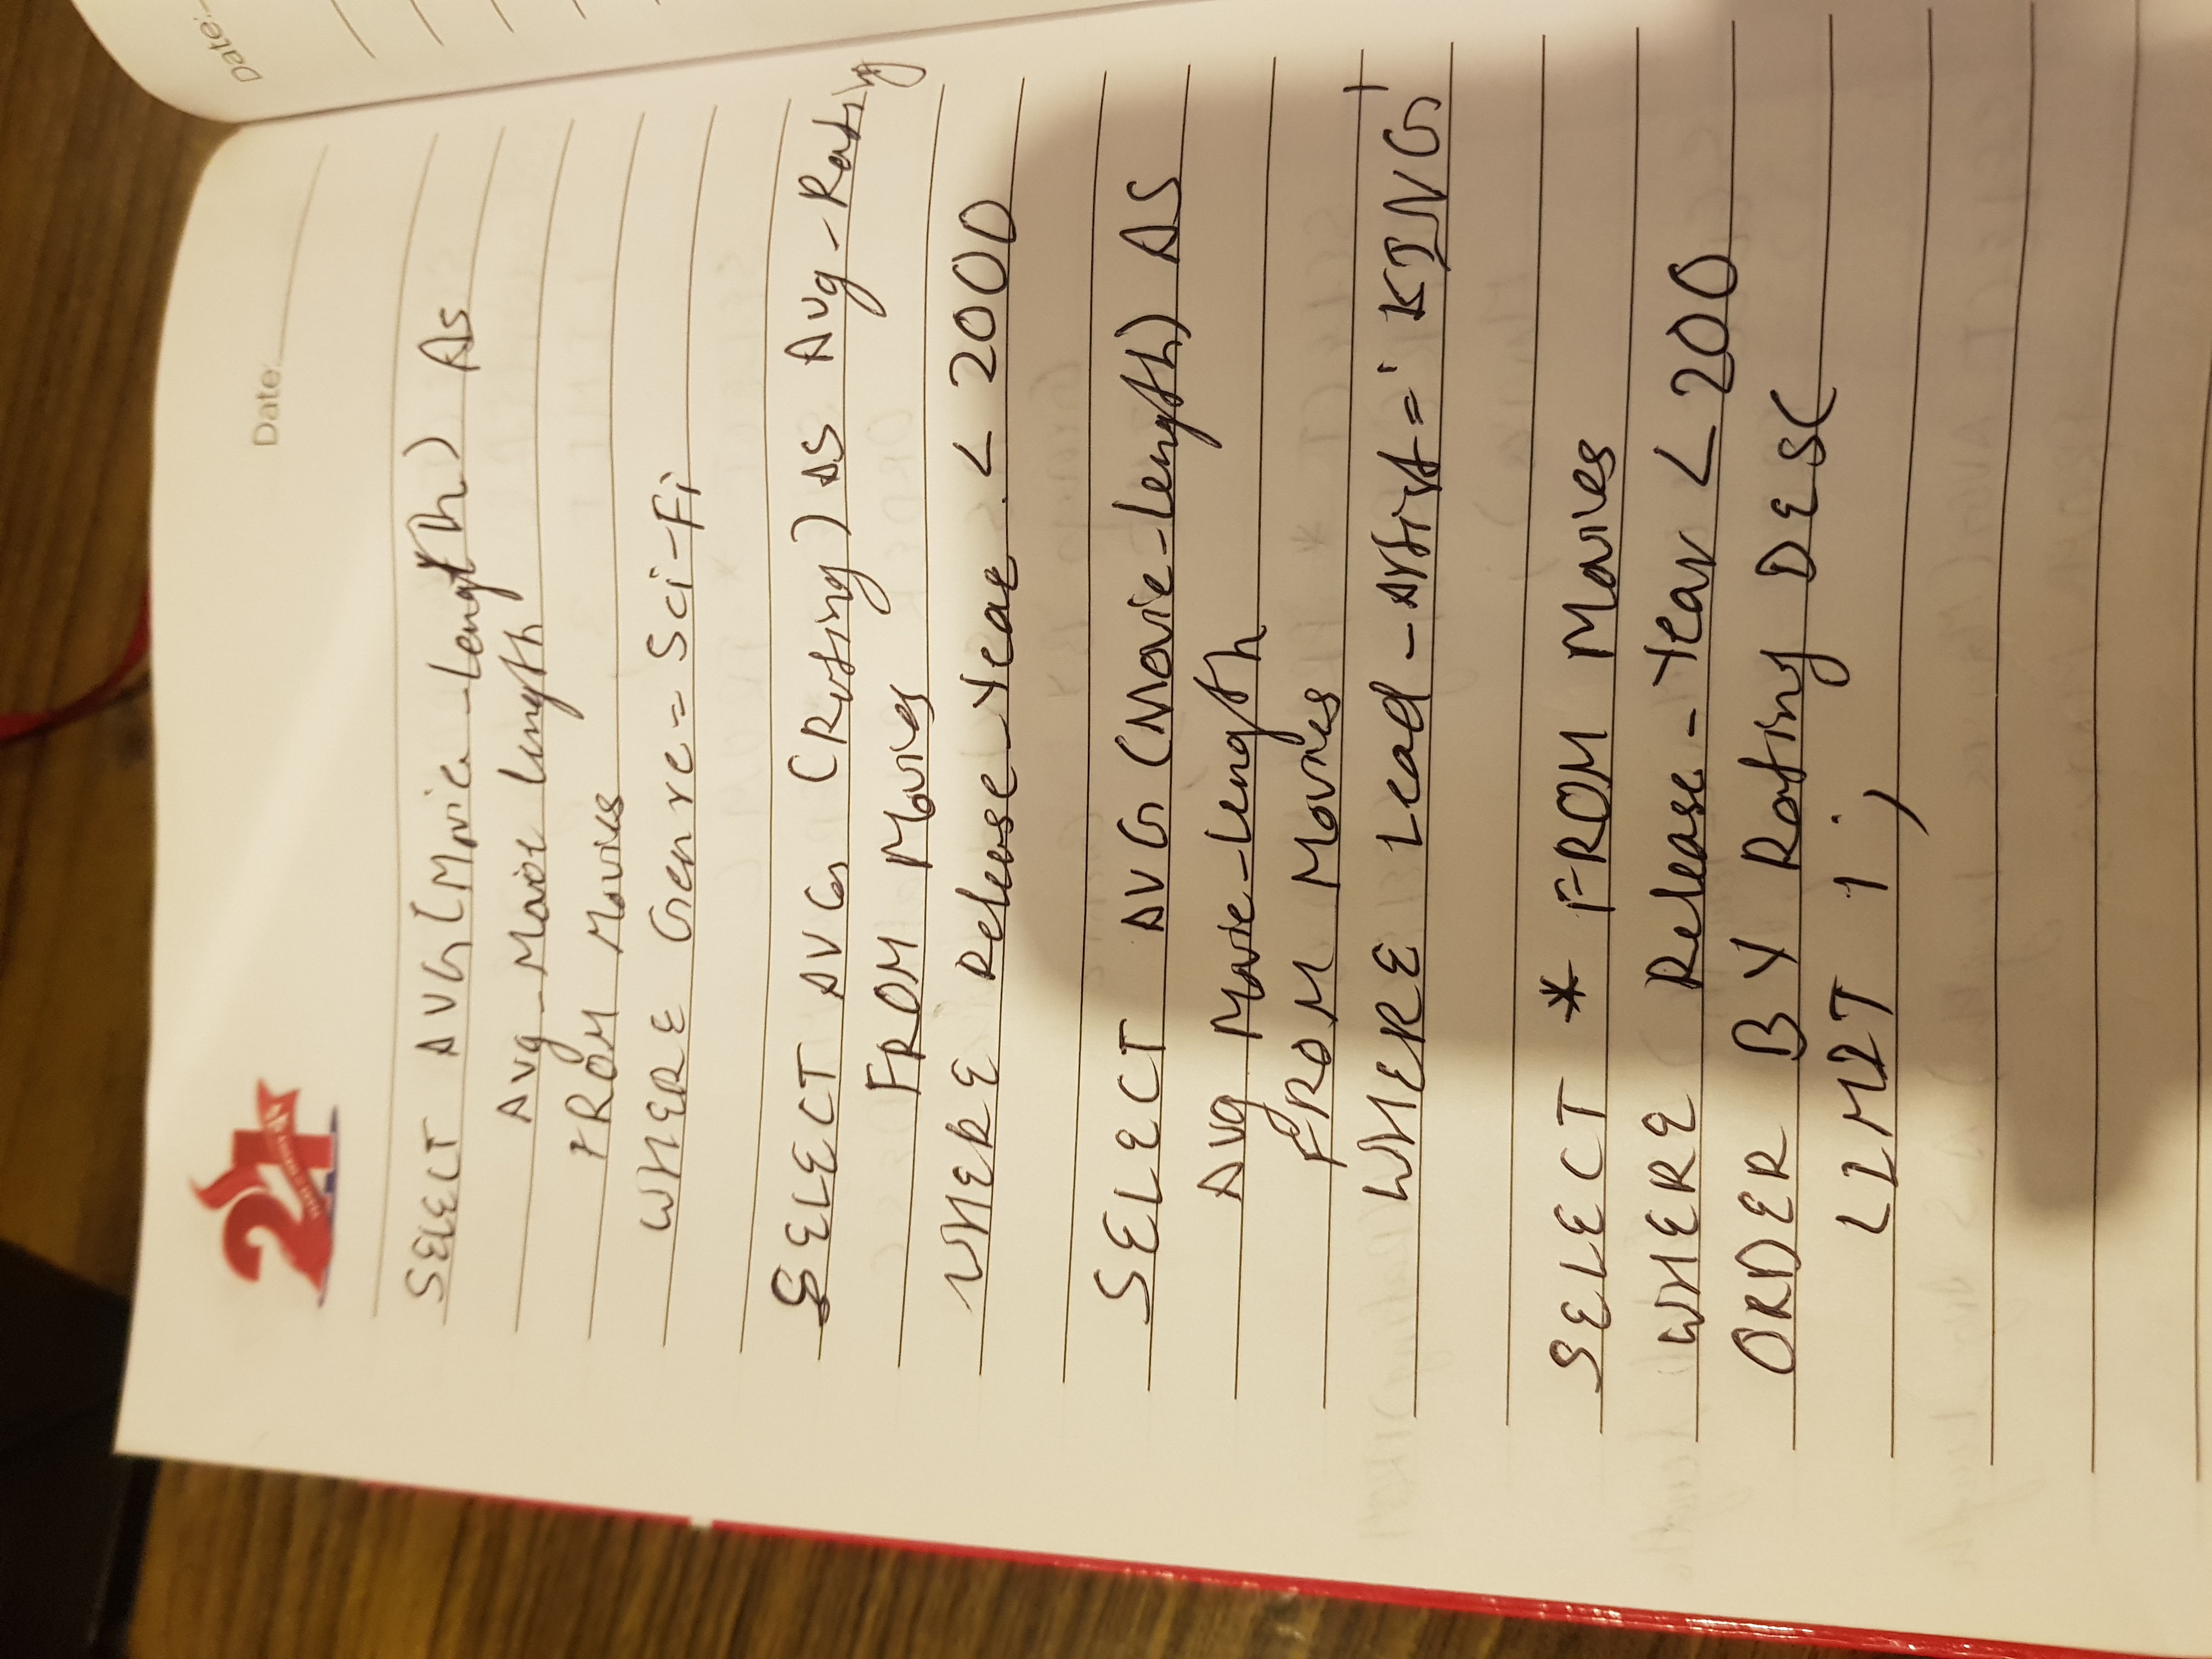 21
Date:
Date:
SELECT AVG(Movie_Length) As
Avg_Movie length
FROM Movies
WHERE Genre = Sci-Fi
SELECT AVG (Rating) AS Avg-Rating
FROM Movies
WHERE Release_Year < 2000
SELECT AVG (Movie-Length) AS
Avg Movie-Length
FROM Movies
WHERE Lead-Artist = 'KING'
SELECT * FROM Movies
WHERE Release-Year < 200
ORDER BY Rating DESC
LIMIT 1;